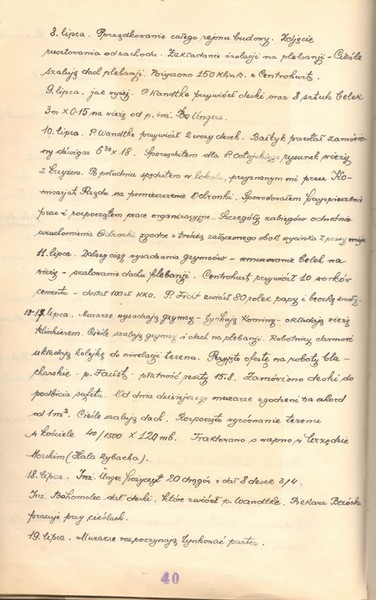 8. lipca. Porządkowanie całego rejonu budowy. Zdjęcie
rusztowania od zachodu. Zakładanie izolacji na plebanji - Cieśle
szalują dach plebanji. Pożyczono 150 kb. z Centrohurt.
9. lipca, jak wyżej. P. Wandtke przywiózł deski oraz 8 sztuk belek
3m x 0·15 na wieżę od p. inż. Ungera.
10. lipca. P. Wandtke przywiózł 2 wozy desek. Bałtyk przesłał zamówio-
ny dźwigar x 18. Sporządziłem dla P. rysunek wieży
z krzyżem. Po południu spędziłem w lokalu, przyznanym mi przez Ko-
misarjat Rządu na pomieszczenie Ochronki. Spowodowałem przyspieszenie
prac i rozpocząłem prace organizacyjne. Szczegóły zabiegów odnośnie
uruchomienia Ochronki zgodne z treścią załączonego obok wycinka z prasy
11. lipca. Dalszy ciąg wyciągania gzymsów - wmurowanie belek na
wieży - szalowanie dachu plebanji. Centrohurt przywiózł 10 worków
cementu - dostał 100 zł KKO. P. Ficht zwiózł 80 rolek papy i beczkę smoły.
15-17. lipca. Murarze wyciągają gzymsy - tynkują kominy - okładają wieżę
klinkierem. Cieśle szalują gzymsy i dach na plebanji. Robotnicy chcą
układają kolejkę do niwelacji terenu. Przyjęto ofertę na roboty bla-
charskie - p. Faust - płatność reszty 15.8. Zamówiono deski do
podbicia sufitu. Od dnia dzisiejszego murarze zgodzeni na akord
od 1 m². Cieśle szalują dach. Rozpoczęto wyrównanie terenu
w kościele 40/1500 x 120 mb. Traktowano o wapno w Urzędzie
Morskim (Hala Rybacka).
18. lipca - Inż. Unger pożyczył 20 drągów i dał 8 desek 3/4.
Inż. Bohomolec dał deski, które zwiózł p. Wandtke. Piekarz
pracuje przy cieślach.
19. lipca. Murarze rozpoczynają tynkować parter.
40